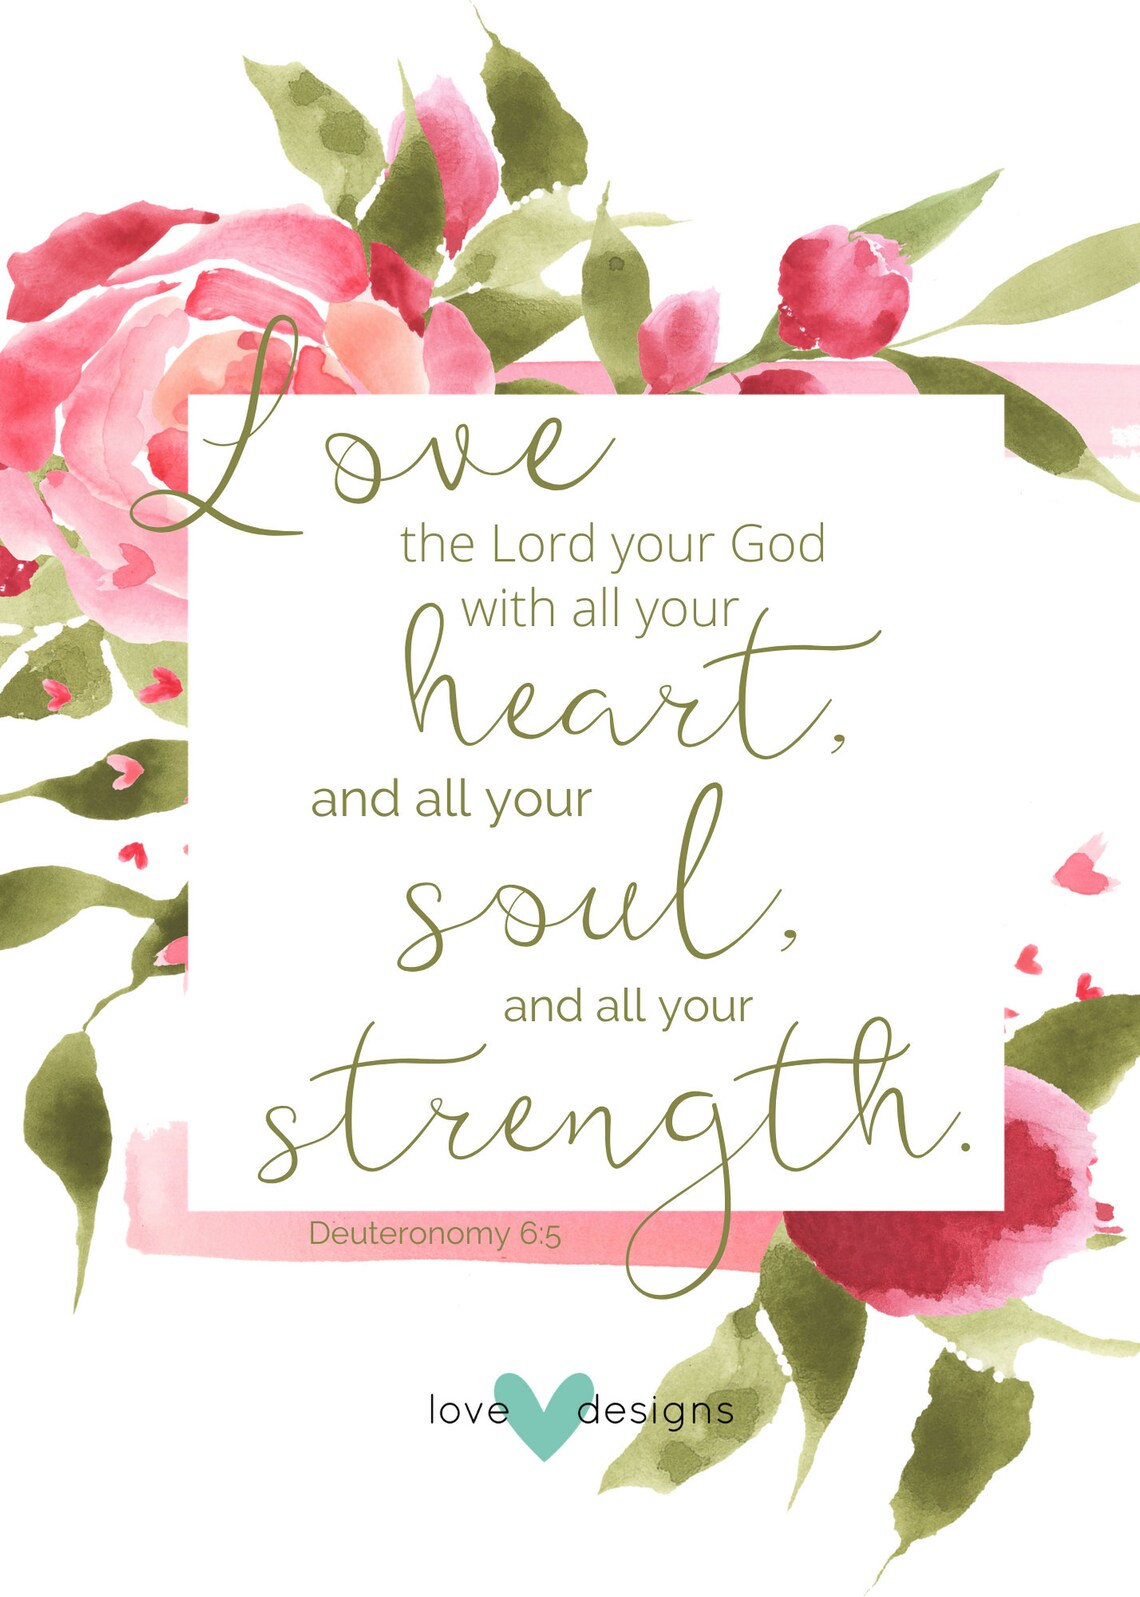 Love
the Lord your God
with all your
heart,
and all your
soul,
and all your
strength.
Deuteronomy 6:5
love designs